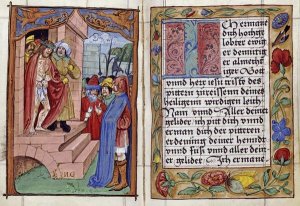 Ch ermane
dich hochge
lobter ewig
er demietig
er almechti
ger Gott
vnnd herr iesu cristi des
pittern zirreissenn deines
heiligenn wirdigen leich
Nam vnnd Aller deiner
gelider ich pitt dich vnnd
erman dich der pittren
erdening deiner henndt
vnnd fuß vnnd aller dein
er gelider Ich ermane